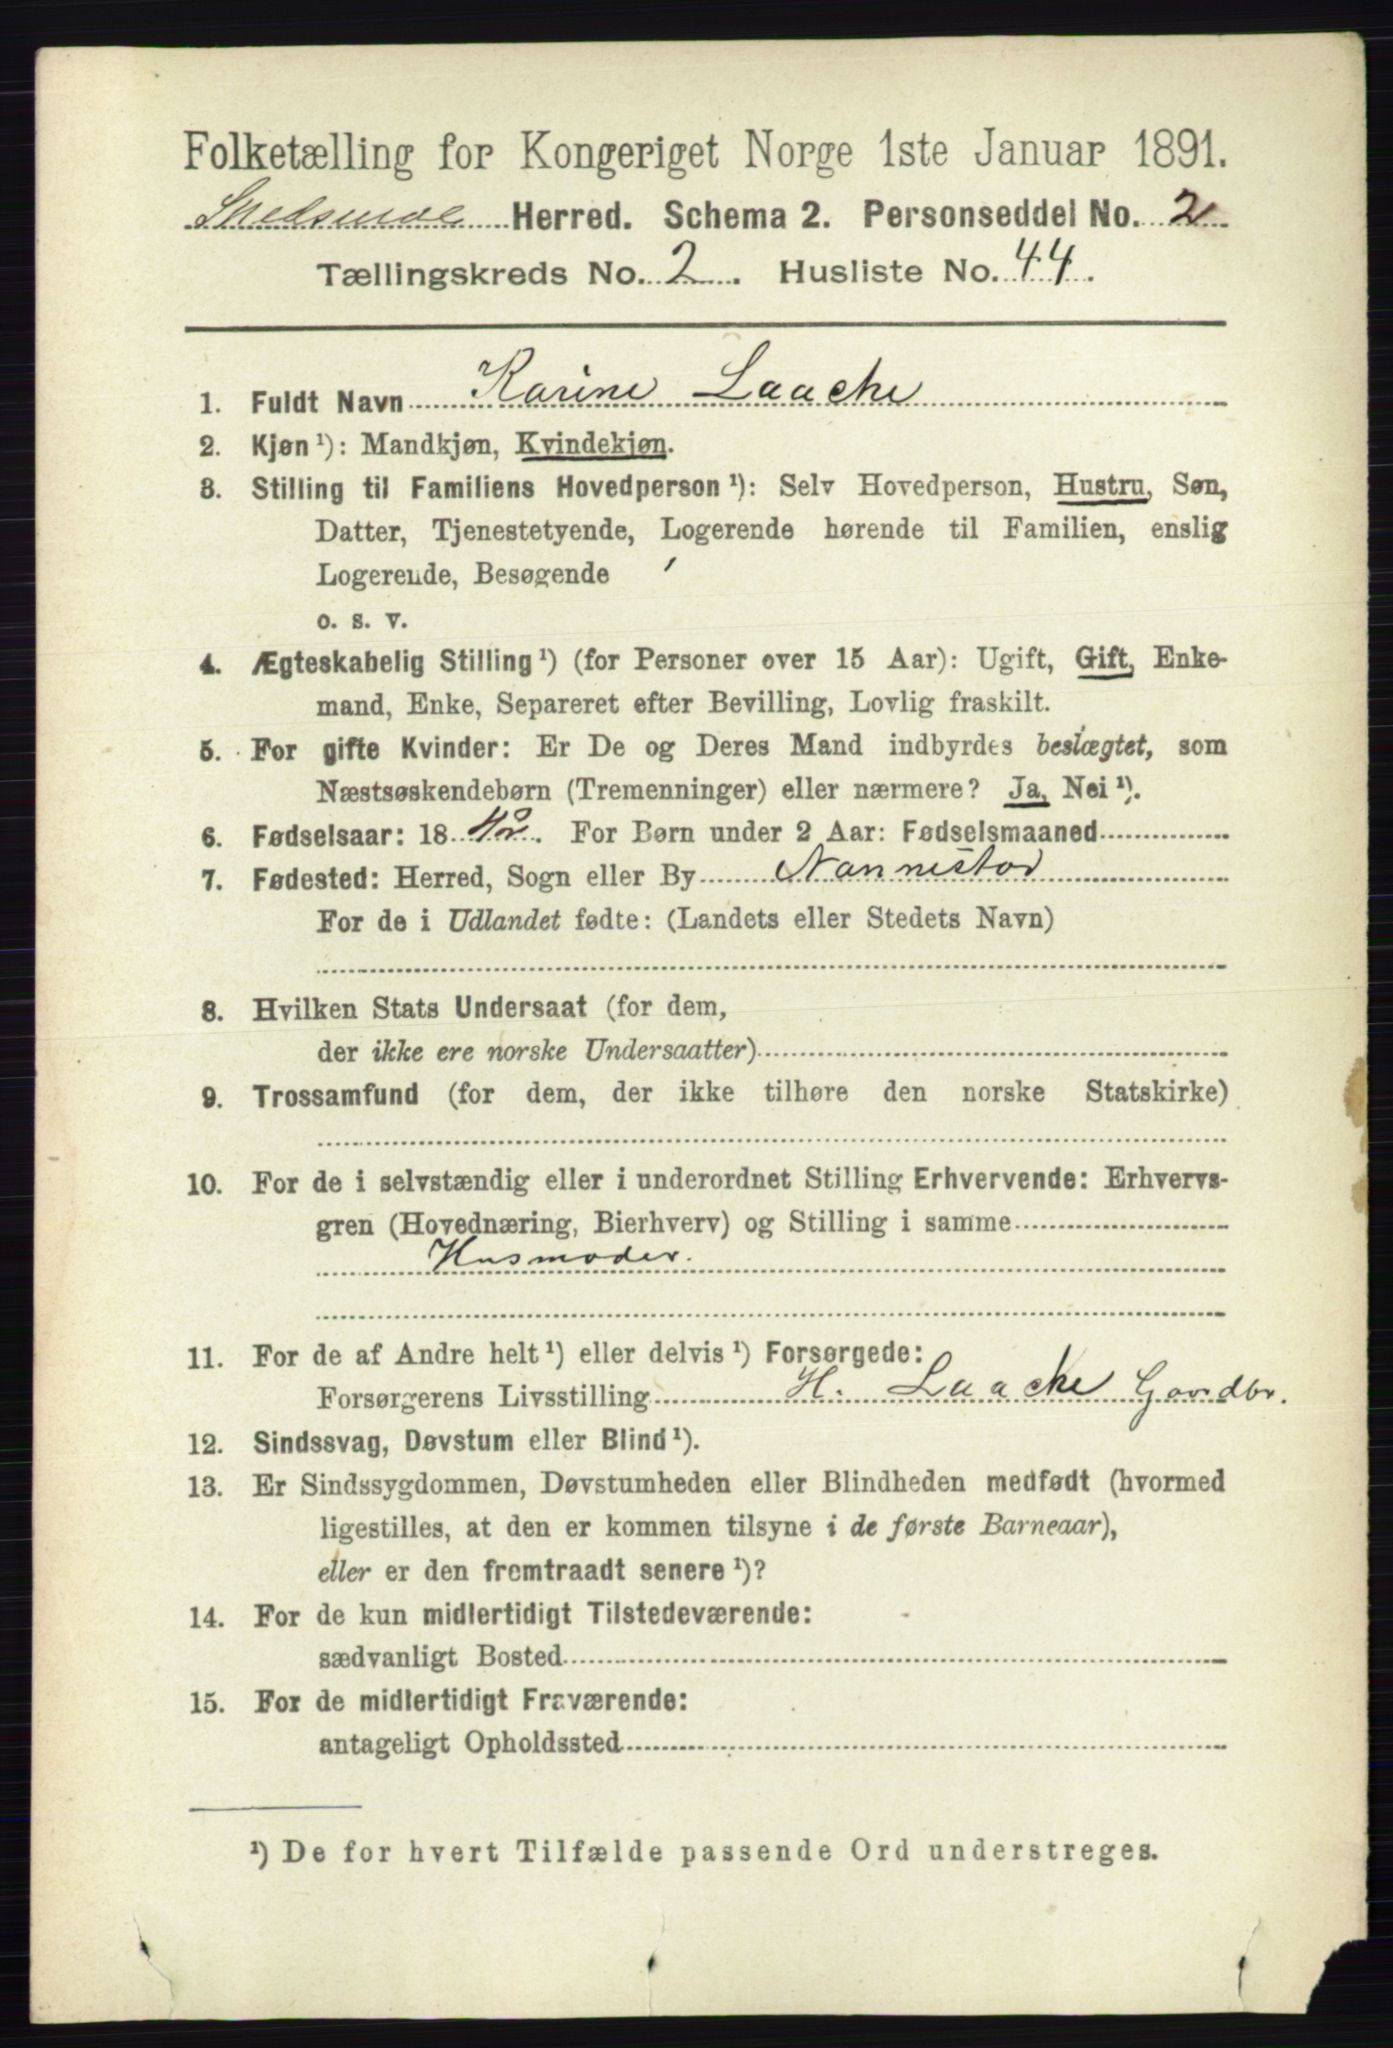 Folketælling for Kongeriget Norge 1ste Januar 1891.
Skedsmoe Herred. Schema 2. Personseddel No. 2
Tællingskreds No. 2. Husliste No. 44.
1. Fuldt Navn Karine Laache
2. Kjøn ¹): Mandkjøn, Kvindekjøn.
3. Stilling til Familiens Hovedperson ¹): Selv Hovedperson, Hustru, Søn,
Datter, Tjenestetyende, Logerende hørende til Familien, enslig
Logerende, Besøgende
o. s. v.
4. Ægteskabelig Stilling ¹) (for Personer over 15 Aar): Ugift, Gift, Enke-
mand, Enke, Separeret efter Bevilling, Lovlig fraskilt.
5. For gifte Kvinder: Er De og Deres Mand indbyrdes beslægtet, som
Næstsøskendebørn (Tremenninger) eller nærmere? Ja, Nei ¹).
6. Fødselsaar: 1842. For Børn under 2 Aar: Fødselsmaaned
7. Fødested: Herred, Sogn eller By Nannestad
For de i Udlandet fødte: (Landets eller Stedets Navn)
8. Hvilken Stats Undersaat (for dem,
der ikke ere norske Undersaatter)
9. Trossamfund (for dem, der ikke tilhøre den norske Statskirke)
10. For de i selvstændig eller i underordnet Stilling Erhvervende: Erhvervs-
gren (Hovednæring, Bierhverv) og Stilling i samme
Husmoder.
11. For de af Andre helt ¹) eller delvis ¹) Forsørgede:
Forsørgerens Livsstilling H. Laache Gaardbr.
12. Sindssvag, Døvstum eller Blind ¹).
13. Er Sindssygdommen, Døvstumheden eller Blindheden medfødt (hvormed
ligestilles, at den er kommen tilsyne i de første Barneaar),
eller er den fremtraadt senere ¹)?
14. For de kun midlertidigt Tilstedeværende:
sædvanligt Bosted
15. For de midlertidigt Fraværende:
antageligt Opholdssted
¹) De for hvert Tilfælde passende Ord understreges.